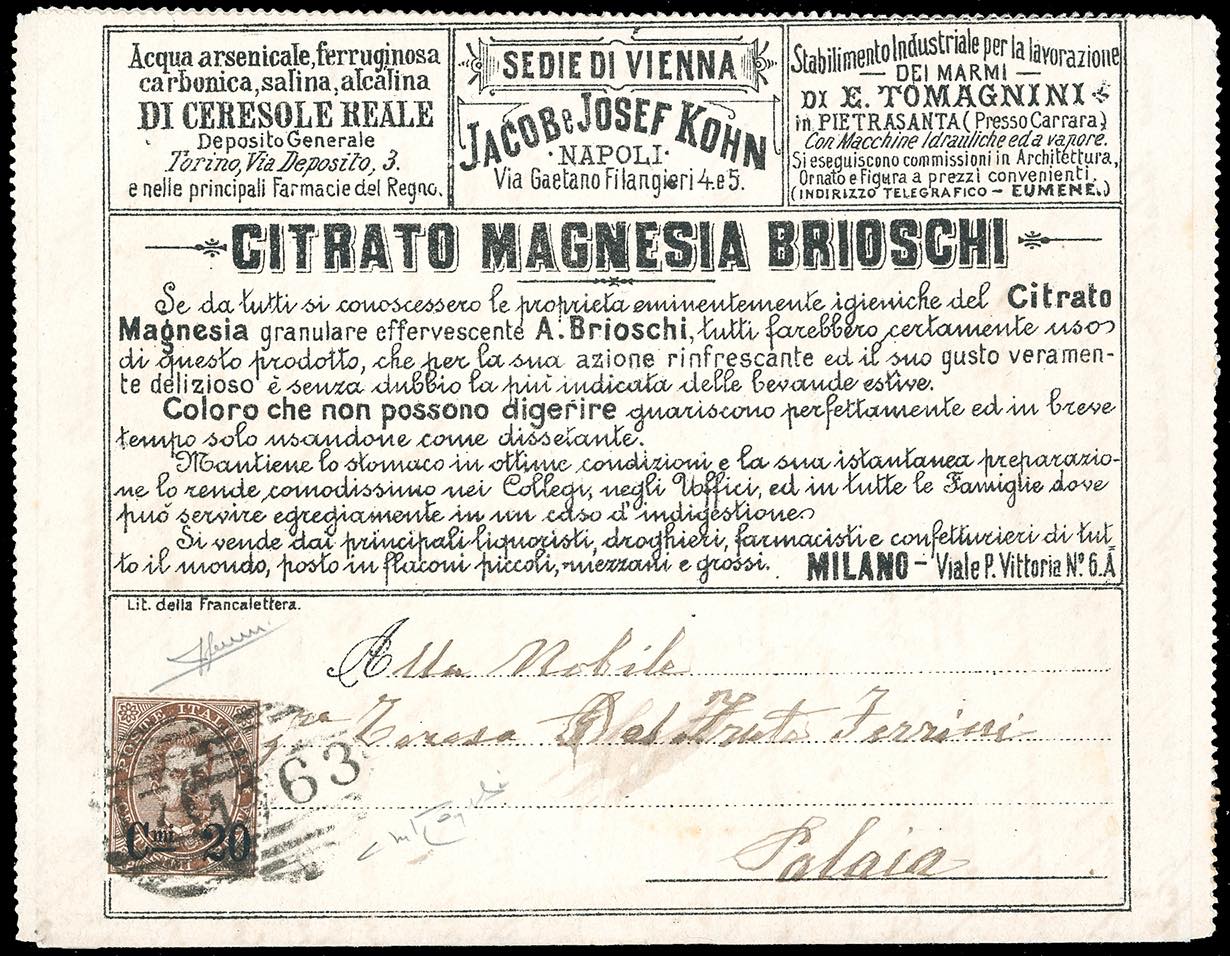 Acqua arsenicale, ferruginosa
carbonica, salina, alcalina
DI CERESOLE REALE
Deposito Generale
Torino, Via Deposito, 3.
e nelle principali Farmacie del Regno.
SEDIE DI VIENNA
JACOB e JOSEF KOHN
· NAPOLI ·
Via Gaetano Filangieri 4. e 5.
Stabilimento Industriale per la lavorazione
— DEI MARMI —
DI E. TOMAGNINI
in PIETRASANTA (Presso Carrara)
Con Macchine Idrauliche ed a vapore.
Si eseguiscono commissioni in Architettura,
Ornato e Figura a prezzi convenienti.
(INDIRIZZO TELEGRAFICO – EUMENE.)
CITRATO MAGNESIA BRIOSCHI
Se da tutti si conoscessero le proprieta eminentemente igieniche del Citrato
Magnesia granulare effervescente A. Brioschi, tutti farebbero certamente uso
di questo prodotto, che per la sua azione rinfrescante ed il suo gusto veramen-
te delizioso è senza dubbio la piu indicata delle bevande estive.
Coloro che non possono digerire guariscono perfettamente ed in breve
tempo solo usandone come dissetante.
Mantiene lo stomaco in ottime condizioni e la sua istantanea preparazio-
ne lo rende comodissimo nei Collegi, negli Uffici, ed in tutte le Famiglie dove
può servire egregiamente in un caso d'indigestione
Si vende dai principali liquoristi, droghieri, farmacisti e confetturieri di tut-
to il mondo, posto in flaconi piccoli, mezzani e grossi. MILANO – Viale P. Vittoria Nº 6. A
Lit. della Francalettera.
Alla Nobile
Teresa Dal Ferrini
Palaia
POSTE ITALIANE
63
Cmi 20